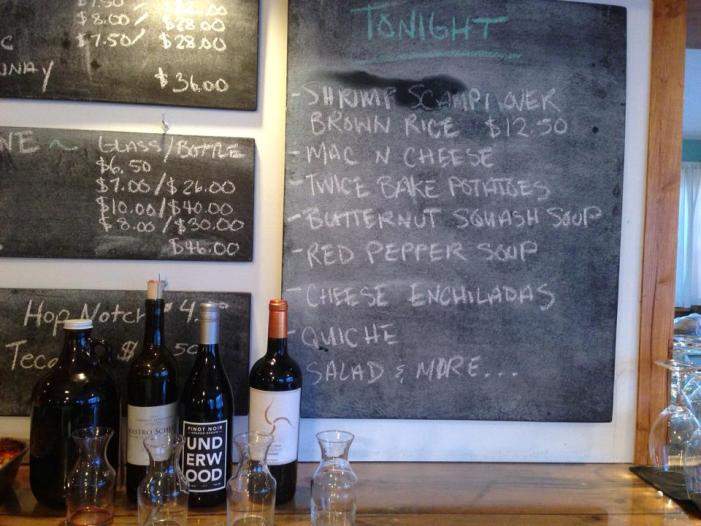 $7.50
$8.00 / $28.00
$7.50 / $28.00
$36.00
~ GLASS/BOTTLE
$6.50
$7.00/$26.00
$10.00/$40.00
$8.00/$30.00
$46.00
Hop Notch $4.
Teca $ 50
TONIGHT
-SHRIMP SCAMPI OVER
BROWN RICE $12.50
-MAC N CHEESE
-TWICE BAKE POTATOES
-BUTTERNUT SQUASH SOUP
-RED PEPPER SOUP
-CHEESE ENCHILADAS
-QUICHE
SALAD & MORE...
PINOT NOIR
UND
ERW
OOD